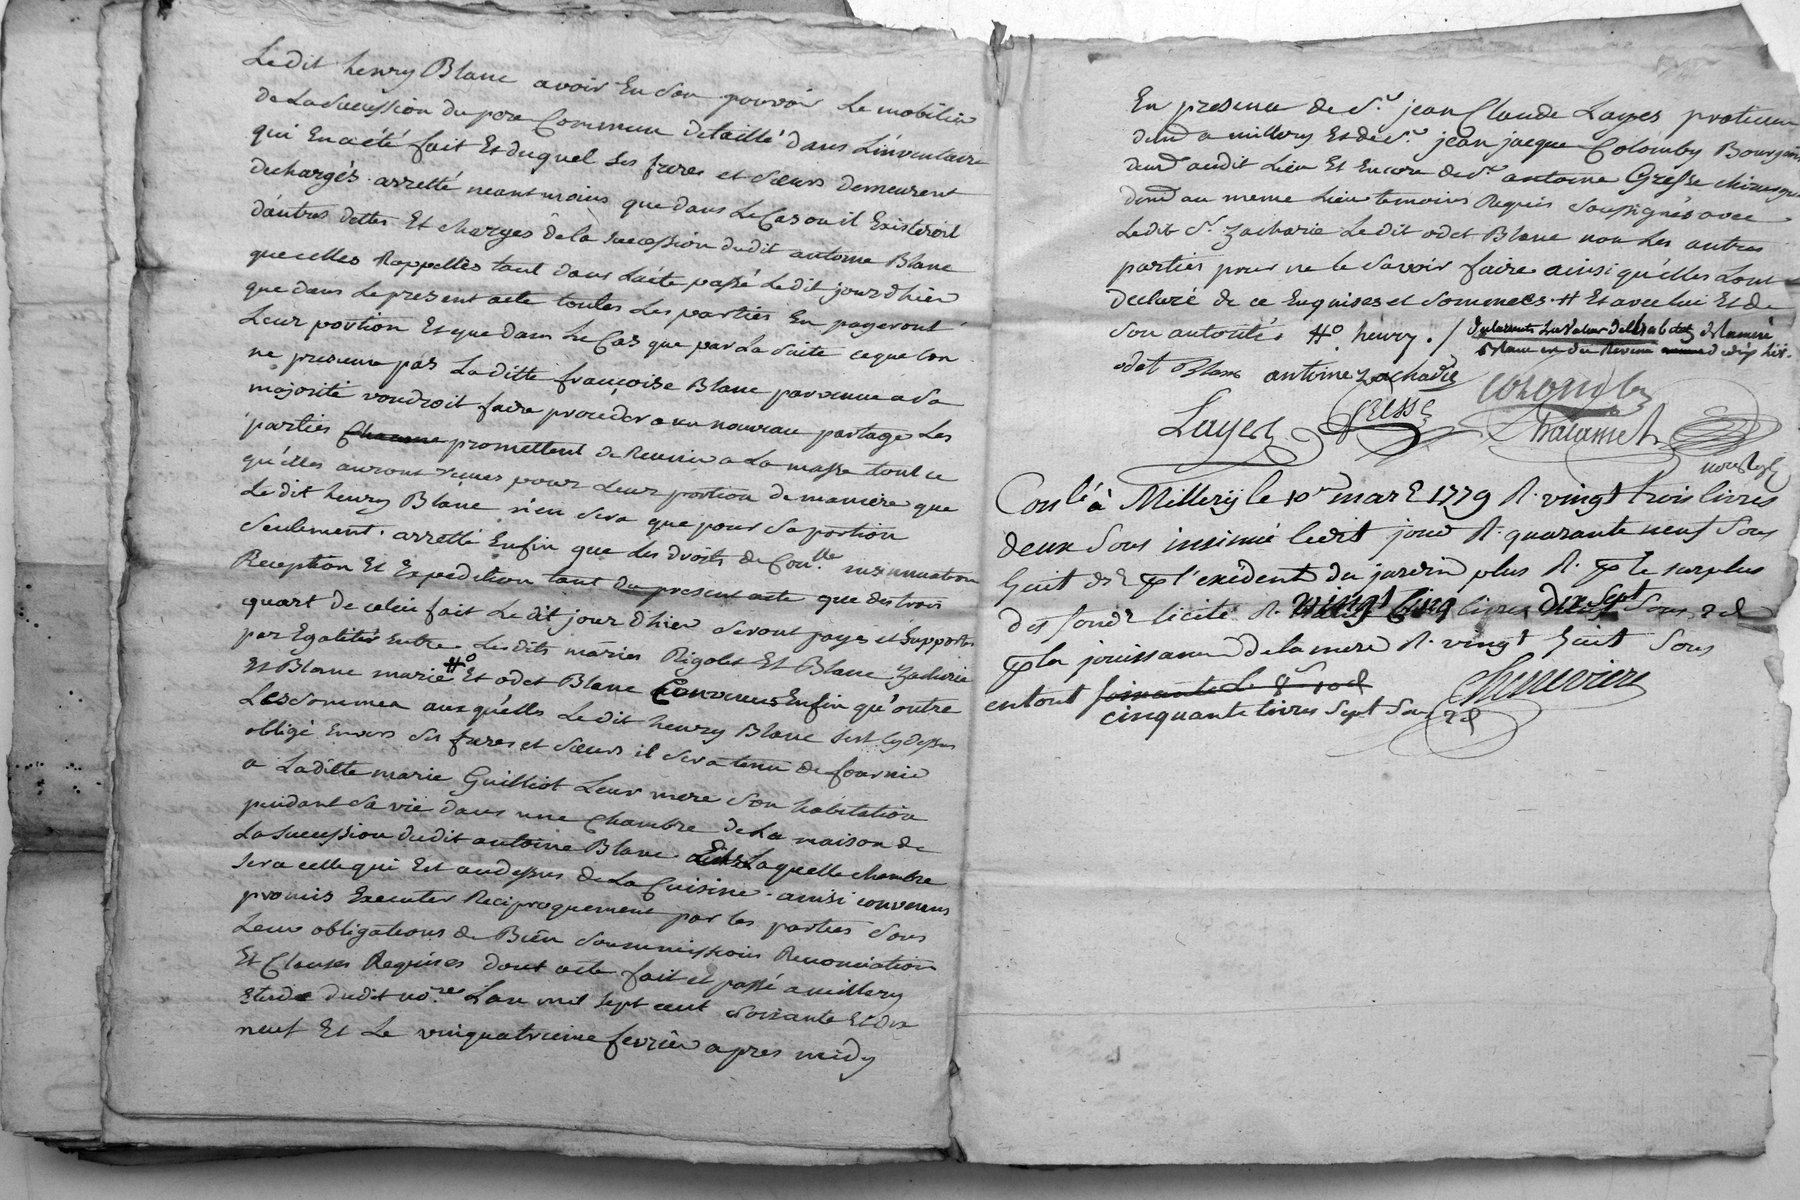 Le dit henry Blanc avoir En son pouvoir Le mobilier
de La succession du pere Commun detaillé dans L'inventaire
qui En a été fait Et duquel ses freres et sœurs demeurent
dechargés. arretté neantmoins que dans Le Cas ou il Existeroit
d'autres dettes Et charges de la succession dudit antoine Blanc
que celles Rappellés tant dans L'acte passé Le dit jour d'hier
que dans Le present acte toutes Les parties En payeront
Leur portion Et que dans Le Cas que par La suite ce que l'on
ne presume pas La ditte françoise Blanc parvenue a sa
majorité voudroit faire proceder a un nouveau partage Les
parties Chacune promettent de Reunir a La masse tout ce
qu'elles auront reçues pour Leur portion de maniere que
Le dit henry Blanc n'en sera que pour sa portion
seulement. arretté Enfin que Les droits de Con.lle insinuation
Reception Et Expedition tant du present acte que des trois
quart de celui fait Le dit jour d'hier seront payé et supportés
par Egalité Entre Lesdits mariés Rigolet Et Blanc Zacharie
Et Blanc marié # Et odet Blanc Convenu Enfin qu'outre
Les sommes auxquelles Le dit henry Blanc s'est cy dessus
obligé Envers ses freres et sœurs il sera tenu de fournir
a La ditte marie Guilliot Leur mere son habitation
pendant sa vie dans une chambre de La maison de
La succession dudit antoine Blanc Laquelle chambre
sera celle qui Est au dessus de La Cuisine. ainsi convenus
promis Executer Reciproquement par les parties sous
Leurs obligations de Bien soummissions Renonciation
Et Clauses Requises dont acte fait et passé a millery
Etude dudit no.re L'an mil sept cent soixante Et dix
neuf Et Le vinquatrieme fevrier apres midy
En presence de S.r jean Claude Layes praticien
dem.t a millery Et de S.r jean jacque Colomby Bourgeois
dem.t audit Lieu Et Encore de S.r antoine Gresse chirurgien
dem.t au meme Lieu temoins Requis soussignés avec
Le dit S.r Zacharie Le dit odet Blanc non Les autres
parties pour ne le savoir faire ainsi qu'elles L'ont
declaré de ce Enquises et sommées. # Et avec lui Et de
son autorité. #o. henry. /
Blanc de Revenu
odet Blanc antoine Zacharie Colomby
Layes Gresse Chalamel
notaire
Con.lé à Millery le 10 mars 1779 R. vingt trois livres
deux sous insinué ledit jour R. quarante neuf sous
huit d.s p l'exédent du jardin plus R. p le surplus
des fonds licité R. vingt cinq livres dix sept sous 2 d
p la jouissance de la mere R. vingt huit sous
en tout Chenevière
cinquante livres sept sous 2 d